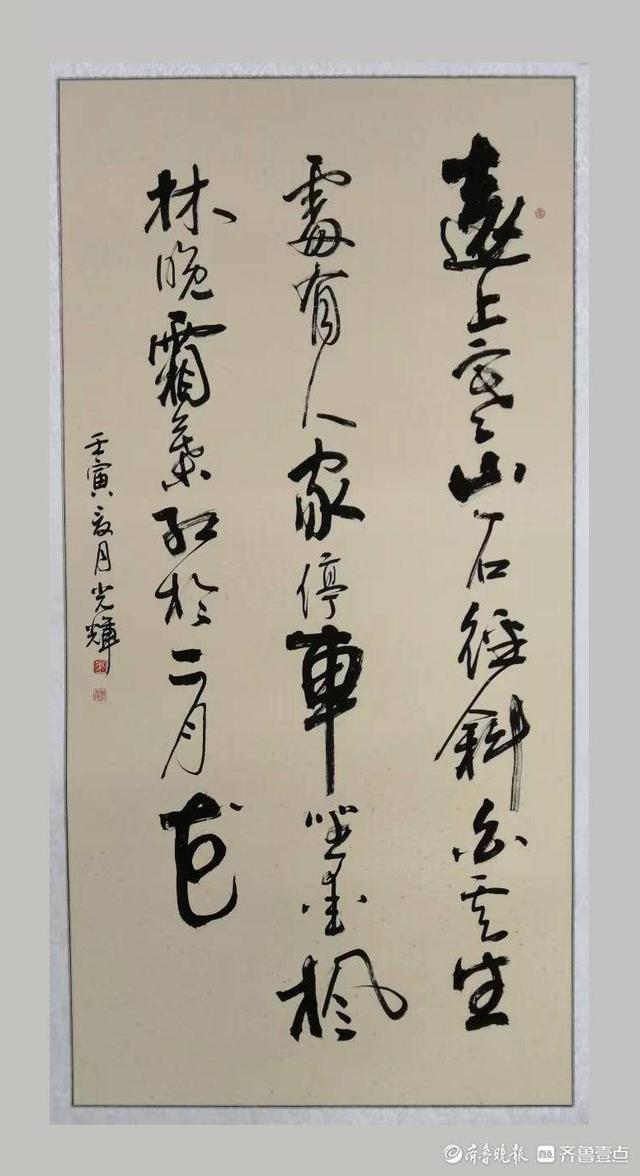 遠上寒山石徑斜白雲生
處有人家停車坐愛楓
林晚霜葉紅於二月花
壬寅夏月光輝
齐鲁晚报 齐鲁壹点